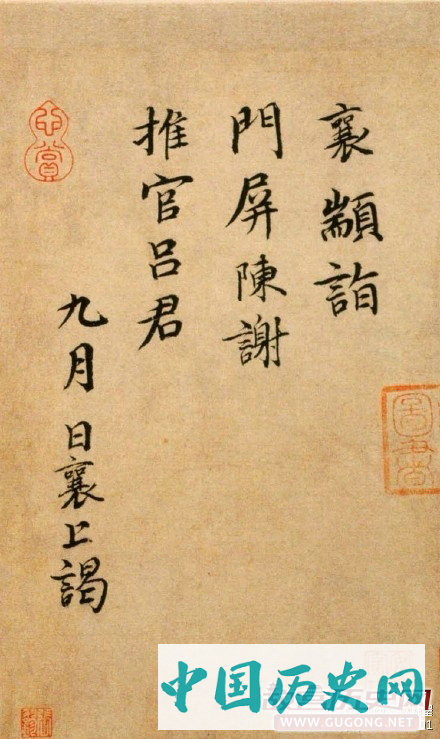 襄顓詣
門屏陳謝
推官呂君
九月 日襄上謁
中国历史网
WWW.GUGONG.NET